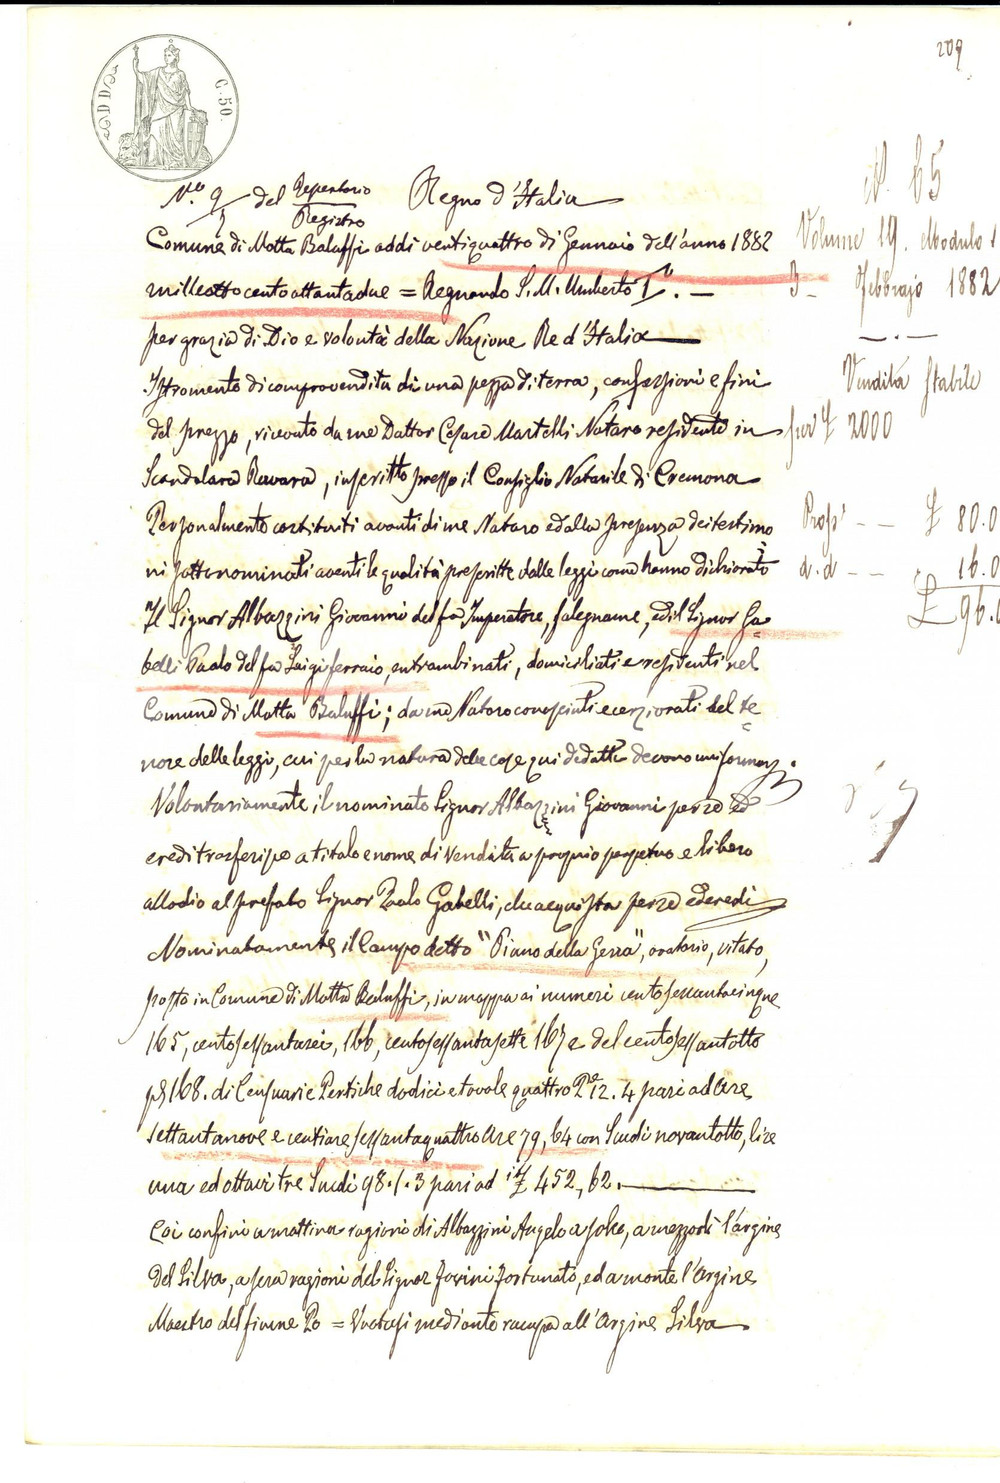 209
C. 50.
N.º 9/5 del Repertorio Registro Regno d'Italia
Comune di Motta Baluffi addi ventiquattro di Gennaio dell'anno 1882
milleottocentoottantadue = Regnando S. M. Umberto I. —
per grazia di Dio e volontà della Nazione Re d'Italia
Istromento di compravendita di una pezza di terra, confessioni e fini
del prezzo, ricevuto da me Dottor Cesare Martelli Notaro residente in
Scandolara Ravara, inscritto presso il Consiglio Notarile di Cremona
Personalmente costituiti avanti di me Notaro e dalla presenza dei testimo
ni sottonominati aventi le qualità prescritte dalle leggi come hanno dichiarato
Il Signor Albazzini Giovanni del fu Imperatore, falegname, ed il Signor Ga=
belli Paolo del fu Luigi ferraio, entrambi nati, domiciliati e residenti nel
Comune di Motta Baluffi; da me Notaro conosciuti e cerziorati del te=
nore delle leggi, cui per la natura delle cose qui dedotte devono uniformarsi.
Volontariamente il nominato Signor Albazzini Giovanni per se ed
eredi trasferisce a titolo e nome di vendita a proprio perpetuo e libero
allodio al prefato Signor Paolo Gabelli, che acquista per se ed eredi
Nominatamente il Campo detto "Piano della Gerra", aratorio, vitato,
posto in Comune di Motta Baluffi, in mappa ai numeri centosessantacinque
165, centosessantasei, 166, centosessantasette 167 e del centosessantotto
168. di Censuarie Pertiche dodici e tavole quattro P.e 12. 4 pari ad are
settantanove e centiare sessantaquattro are 79, 64 con Scudi novantotto, lire
una ed ottavi tre Scudi 98. 1. 3 pari ad it £ 452, 62.
Coi confini a mattina ragioni di Albazzini Angelo a , a mezzodì l'argine
del Silva, a sera ragioni del Signor Fortunato, ed a monte l'Argine
Maestro del fiume Po = mediante rampa all'Argine Silva
N. 65
Volume 19. Modulo 1
3 - Febbrajo 1882
Vendita Stabile
per £ 2000
Prop' — — £ 80.0
d. d — — 16.0
£ 96.0